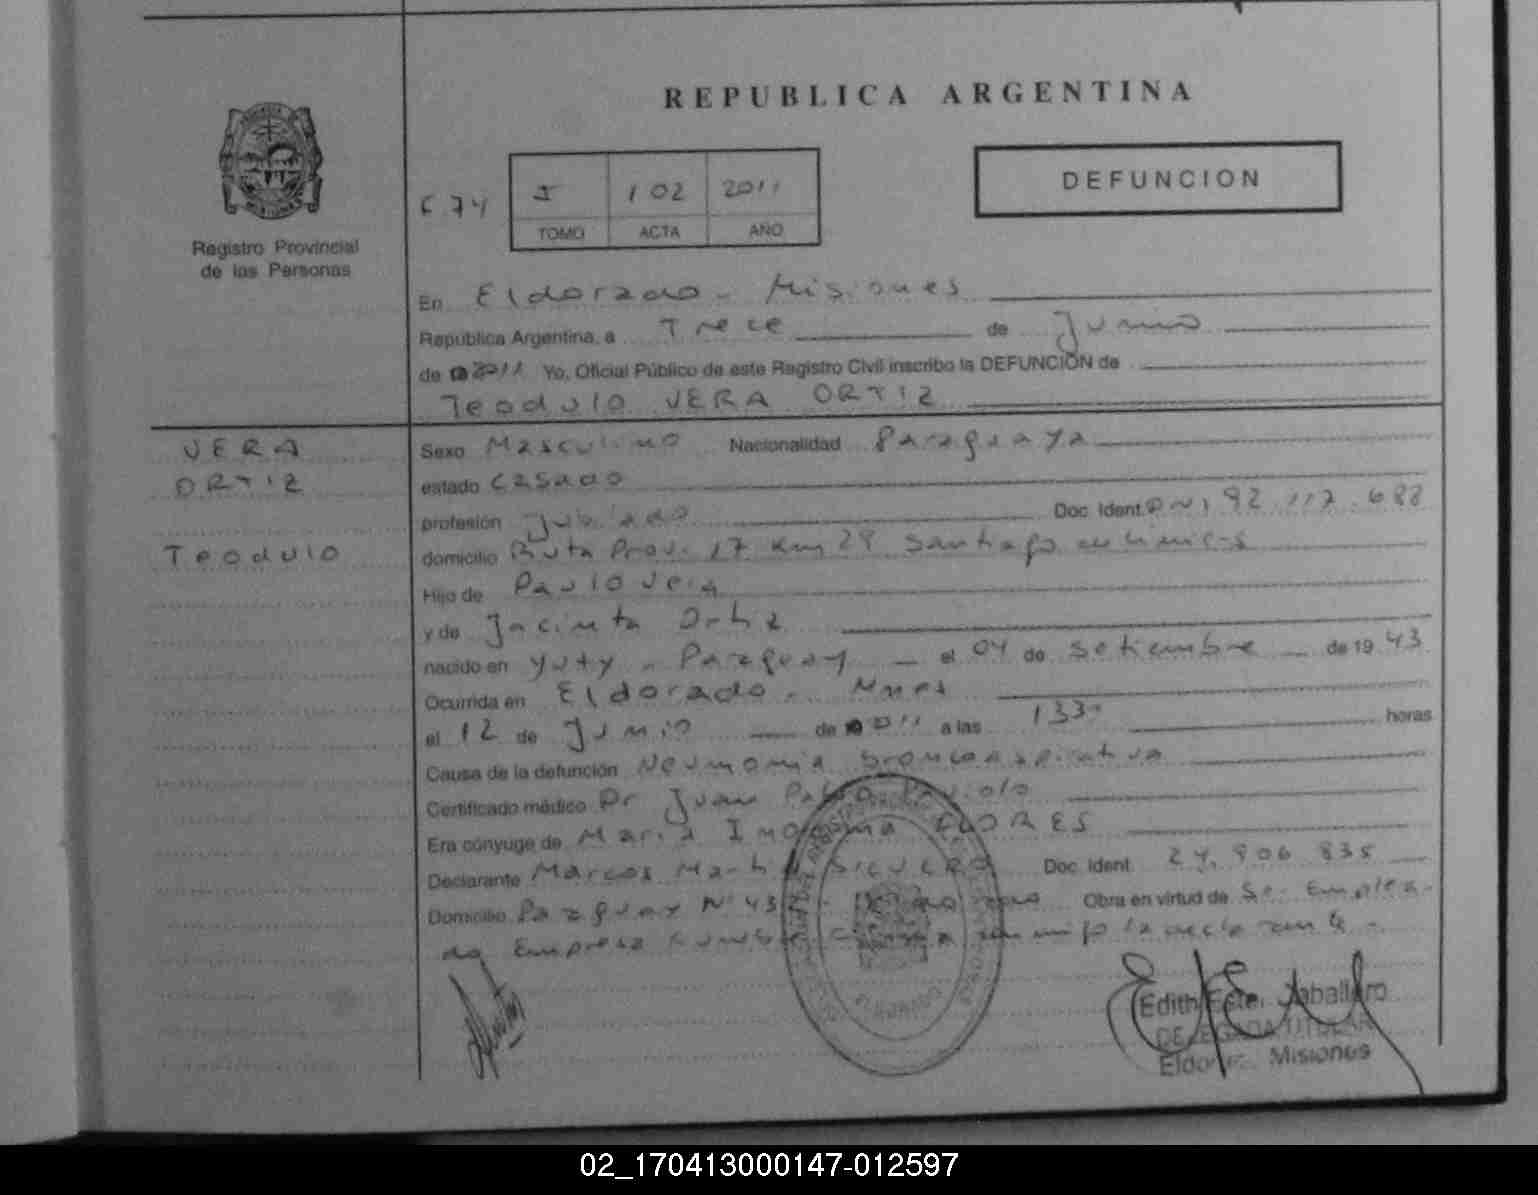 REPUBLICA ARGENTINA
Registro Provincial
de las Personas
F 74
I 102 2011
TOMO ACTA AÑO
DEFUNCION
En Eldorado - Misiones
República Argentina, a Trece de Junio
de 2011 Yo, Oficial Público de este Registro Civil inscribo la DEFUNCIÓN de
Teodulo VERA ORTIZ
VERA
ORTIZ
Teodulo
Sexo Masculino Nacionalidad Paraguaya
estado casado
profesión Jubilado Doc. Ident. DNI 92.117.688
domicilio Ruta Prov. 17 Km 28 Santiago de Liniers
Hijo de Paulo Vera
y de Jacinta Ortiz
nacido en Yuty - Paraguay el 04 de setiembre de 1943
Ocurrida en Eldorado - Mnes
el 12 de Junio de 2011 a las 1330 horas
Causa de la defunción Neumonia broncoaspirativa
Certificado médico Dr Juan Pablo
Era cónyuge de Maria FLORES
Declarante Marcos SICUERO Doc. Ident. 24.906.835
Domicilio Paraguay N° 43 Obra en virtud de Ser Emplea-
do Empresa
Edith Caballero
DELEGADA TITULAR
Eldorado Misiones
02_170413000147-012597